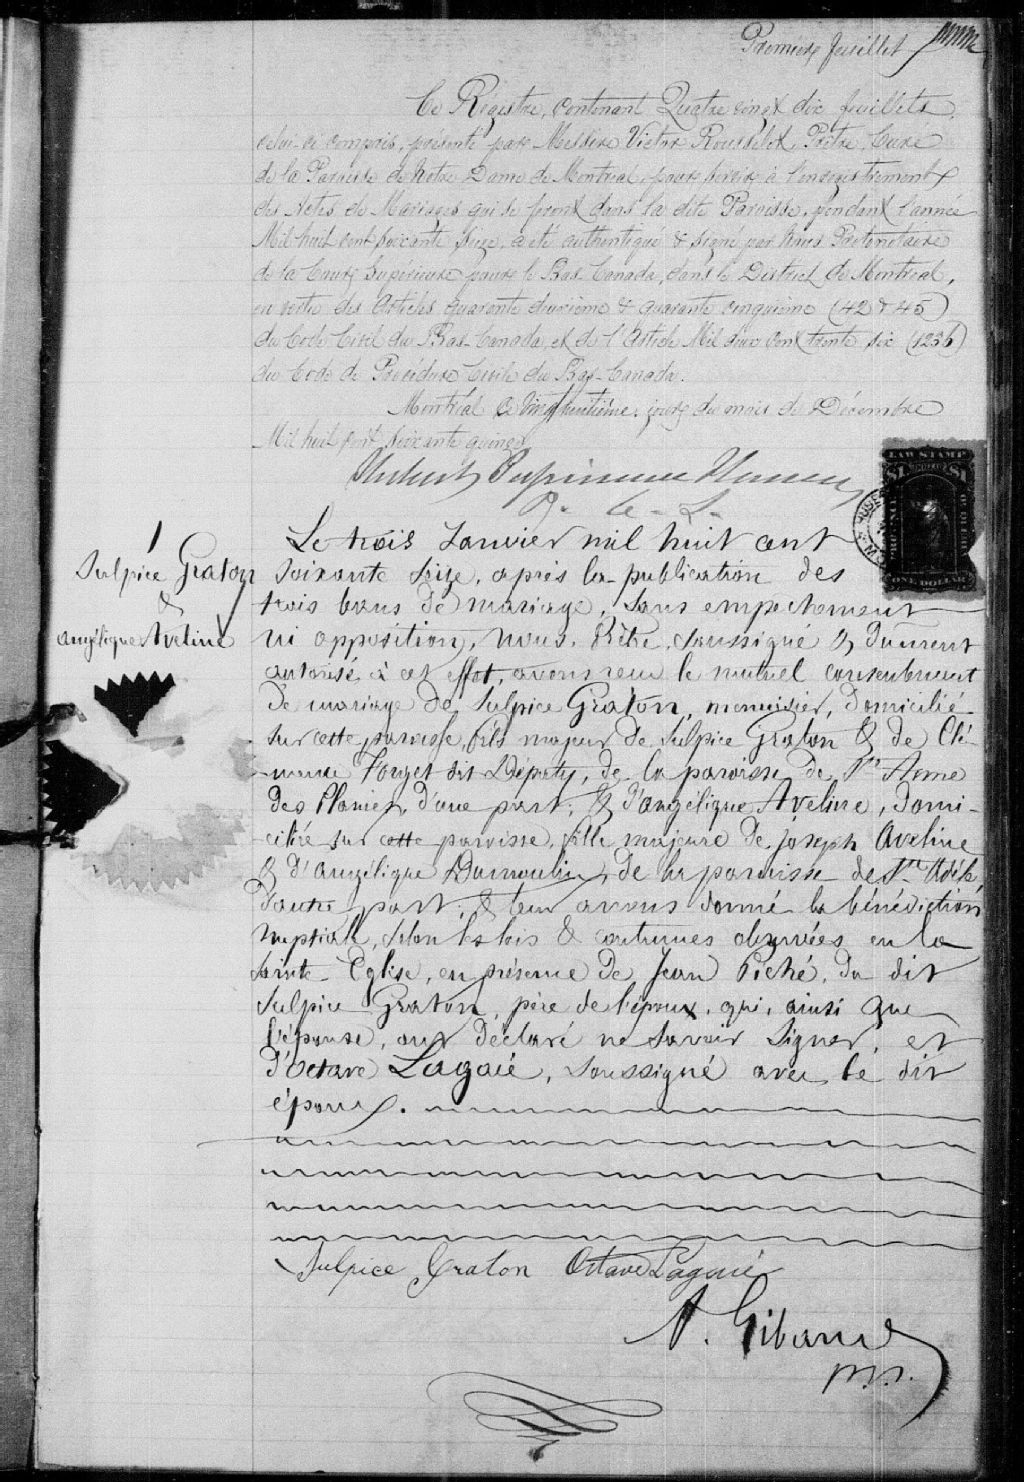 Première feuillet
Ce Régistre, contenant Quatre vingt dix feuillets,
celui-ci compris, présenté par Messire Victor Rousselot, Prêtre, Curé
de la Paroisse de Notre Dame de Montréal, pour servir à l'enregistrement
des Actes de Mariages qui se feront dans la dite Paroisse, pendant l'année
Mil huit cent soixante seize, a été authentiqué & signé par Nous Protonotaire
de la Cour Supérieure pour le Bas-Canada, dans le District de Montréal,
en vertu des Articles quarante deuxième & quarante cinquième (42 & 45)
du Code Civil du Bas-Canada, et de l'Article Mil deux cent trente six (1236)
du Code de Procédure Civile du Bas-Canada.
Montréal ce vingt huitième jour du mois de Décembre
Mil huit cent soixante quinze
LAW STAMP
ONE DOLLAR
1
Sulpice Graton
&
Angélique Aveline
Le trois Janvier mil huit cent
soixante seize, après la publication des
trois bans de mariage, sans empêchement
ni opposition, nous, Prêtre, soussigné & dûment
autorisé à cet effet, avons reçu le mutuel consentement
de mariage de Sulpice Graton, menuisier, domicilié
sur cette paroisse, fils majeur de Sulpice Graton & de Clé-
mence Forget dit Dépaty, de la paroisse de Ste Anne
des Plaines, d'une part; & d'Angélique Aveline, domi-
ciliée sur cette paroisse, fille majeure de Joseph Aveline
& d'Angélique Dumoulin, de la paroisse de Ste Adèle,
d'autre part; & leur avons donné la bénédiction
nuptiale, selon les lois & coutumes observées en la
Sainte-Eglise, en présence de Jean Piché, du dit
Sulpice Graton, père de l'époux, qui, ainsi que
l'épouse, ont déclaré ne savoir signer, et
d'Octave Lagacé, soussigné avec le dit
époux.
Sulpice Graton Octave Lagacé